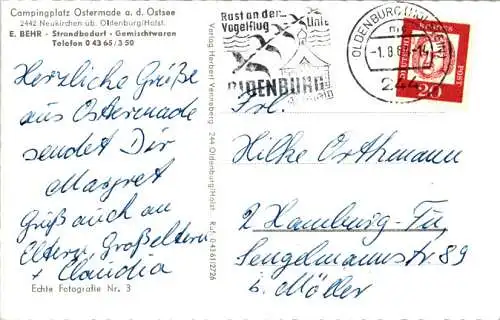 Campingplatz Ostermade a. d. Ostsee
2442 Neukirchen üb. Oldenburg/Holst.
E. BEHR - Strandbedarf - Gemischtwaren
Telefon 0 43 65 / 3 50
Herzliche Grüße
aus Ostermade
sendet Dir
Margret
Grüß auch an
Eltern, Großeltern
+ Claudia
Echte Fotografie Nr. 3
Verlag Herbert Venneberg 244 Oldenburg/Holst Ruf. 04361/2726
Rast an der
Vogelflug
Linie
OLDENBURG
OLDENBURG (HOLSTEIN)
-1.8.6
244
DEUTSCHE
POST
20
Frl.
Hilke Orthmann
2 Hamburg-Fu
Sengelmannstr. 89
b. Möller